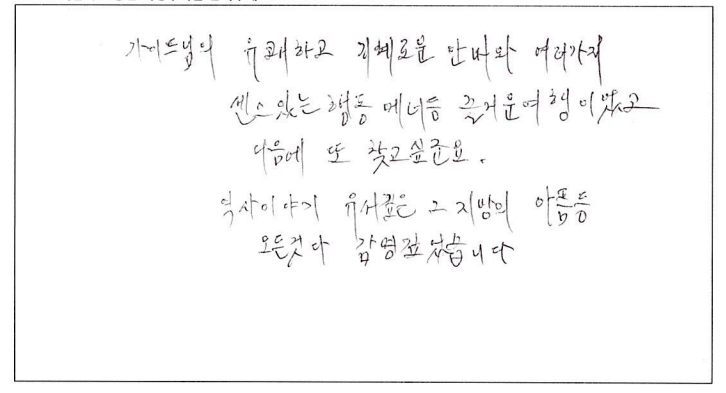 가이드님의 유쾌하고 지혜로운 안내와 여러가지
센스있는 행동 메너등 즐거운여행이었고
다음에 또 찾고싶군요.
역사이야기 유서깊은 그 지방의 아픔등
모든것다 감명깊었습니다